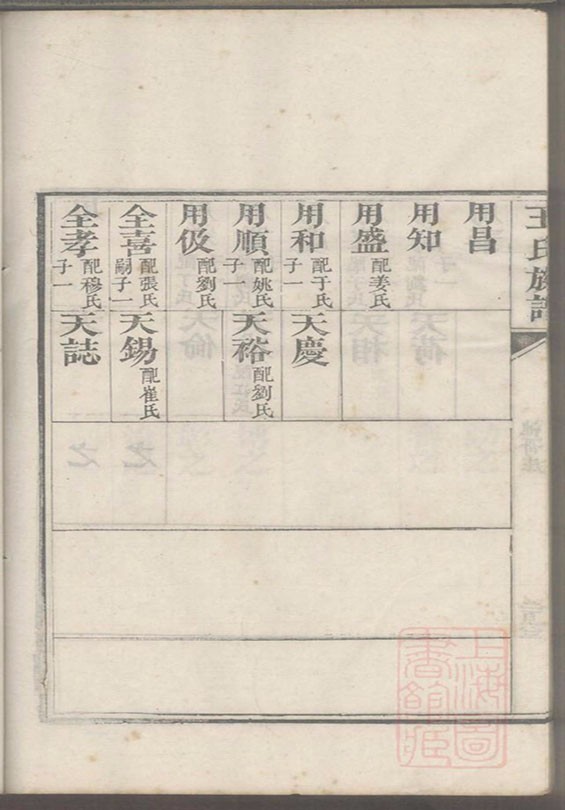 王氏族譜
用昌
用知
用盛 配姜氏
用和 配于氏 子一
天慶
用順 配姚氏 子一
天裕 配劉氏
用伋 配劉氏
全喜 配張氏 嗣子一
天錫 配崔氏
全孝 配穆氏 子一
天誌
上海圖書館藏